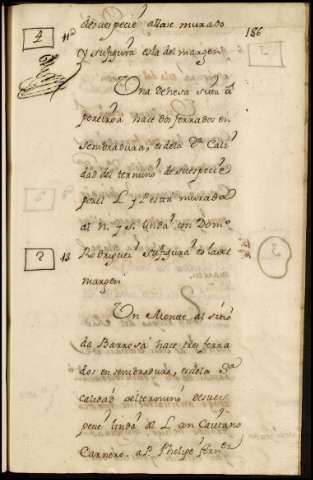 186
de suespecie allase murado
y sufigura esla del margen
Una dehesa sita a
pereiroa hace dos ferrados en
sembradura, es dela 2ª Cali
dad del termino de suespecie
por el L y P esta murada
al N. y S. linda con Domº
13 Rodriguez sufigura es la del
margen
Un Monte al sitio
de Barrosa hace tres ferra
dos en sembradura, es dela 3ª
calidad del termino desues
pecie linda al L con Caietano
Carnero, a P. Phelipe fern